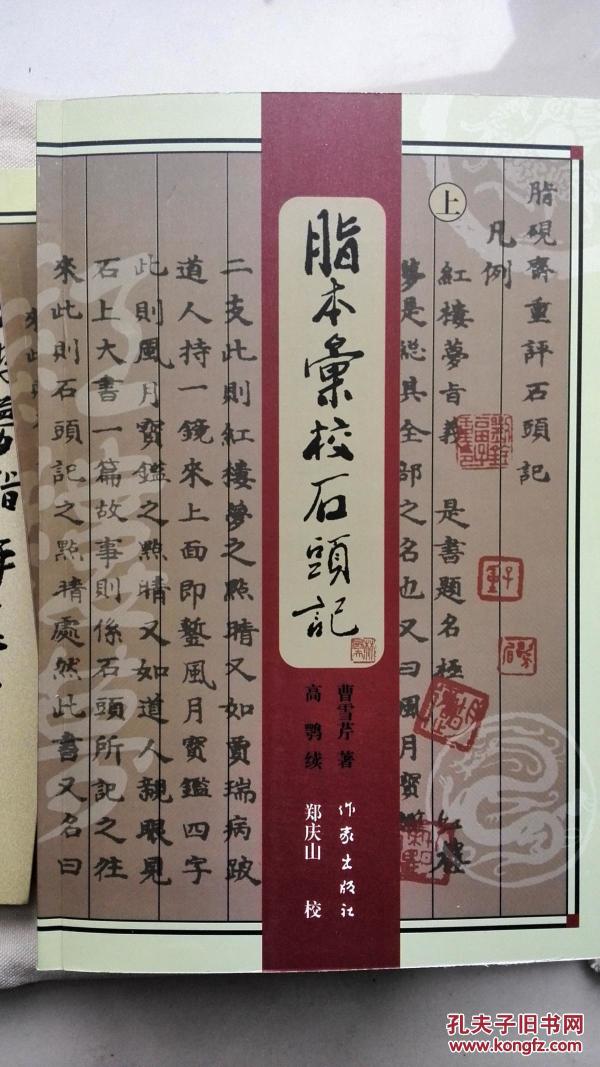 上
脂硯齋重評石頭記
凡例
紅樓夢旨義 是書題名極
夢是総其全部之名也又曰風月寳
脂本彙校石頭記
曹雪芹 著
高鹗 续
作家出版社
郑庆山 校
二支此則紅樓夢之點睛又如賈瑞病跛
道人持一鏡來上面即鏨風月寳鑑四字
此則風月寳鑑之點睛又如道人親眼見
石上大書一篇故事則係石頭所記之往
來此則石頭記之點睛處然此書又名曰
孔夫子旧书网
www.kongfz.com